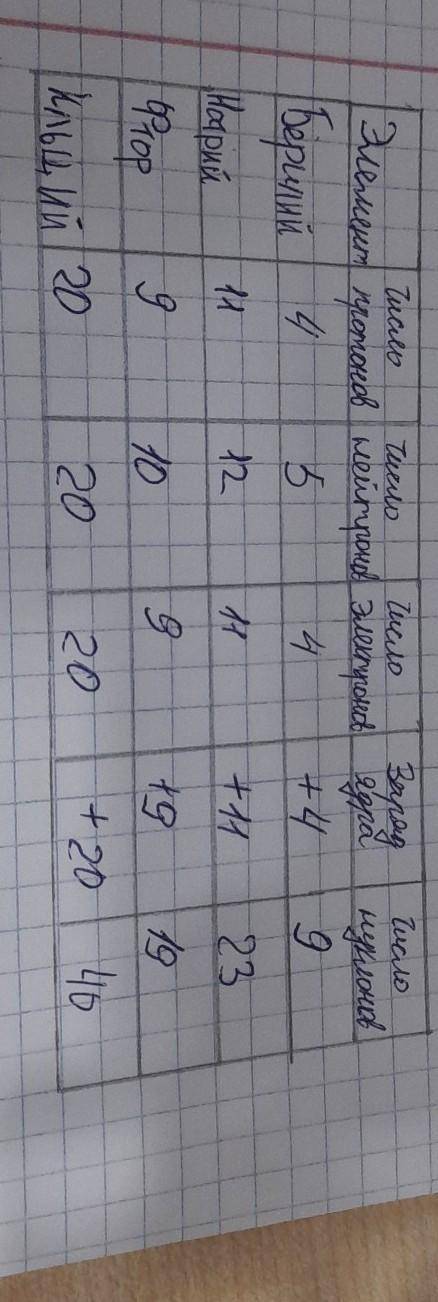 Элемент Число протонов Число нейтронов Число электронов Заряд ядра Число нуклонов
Бериллий 4 5 4 +4 9
Натрий 11 12 11 +11 23
Фтор 9 10 9 +9 19
20 20 20 +20